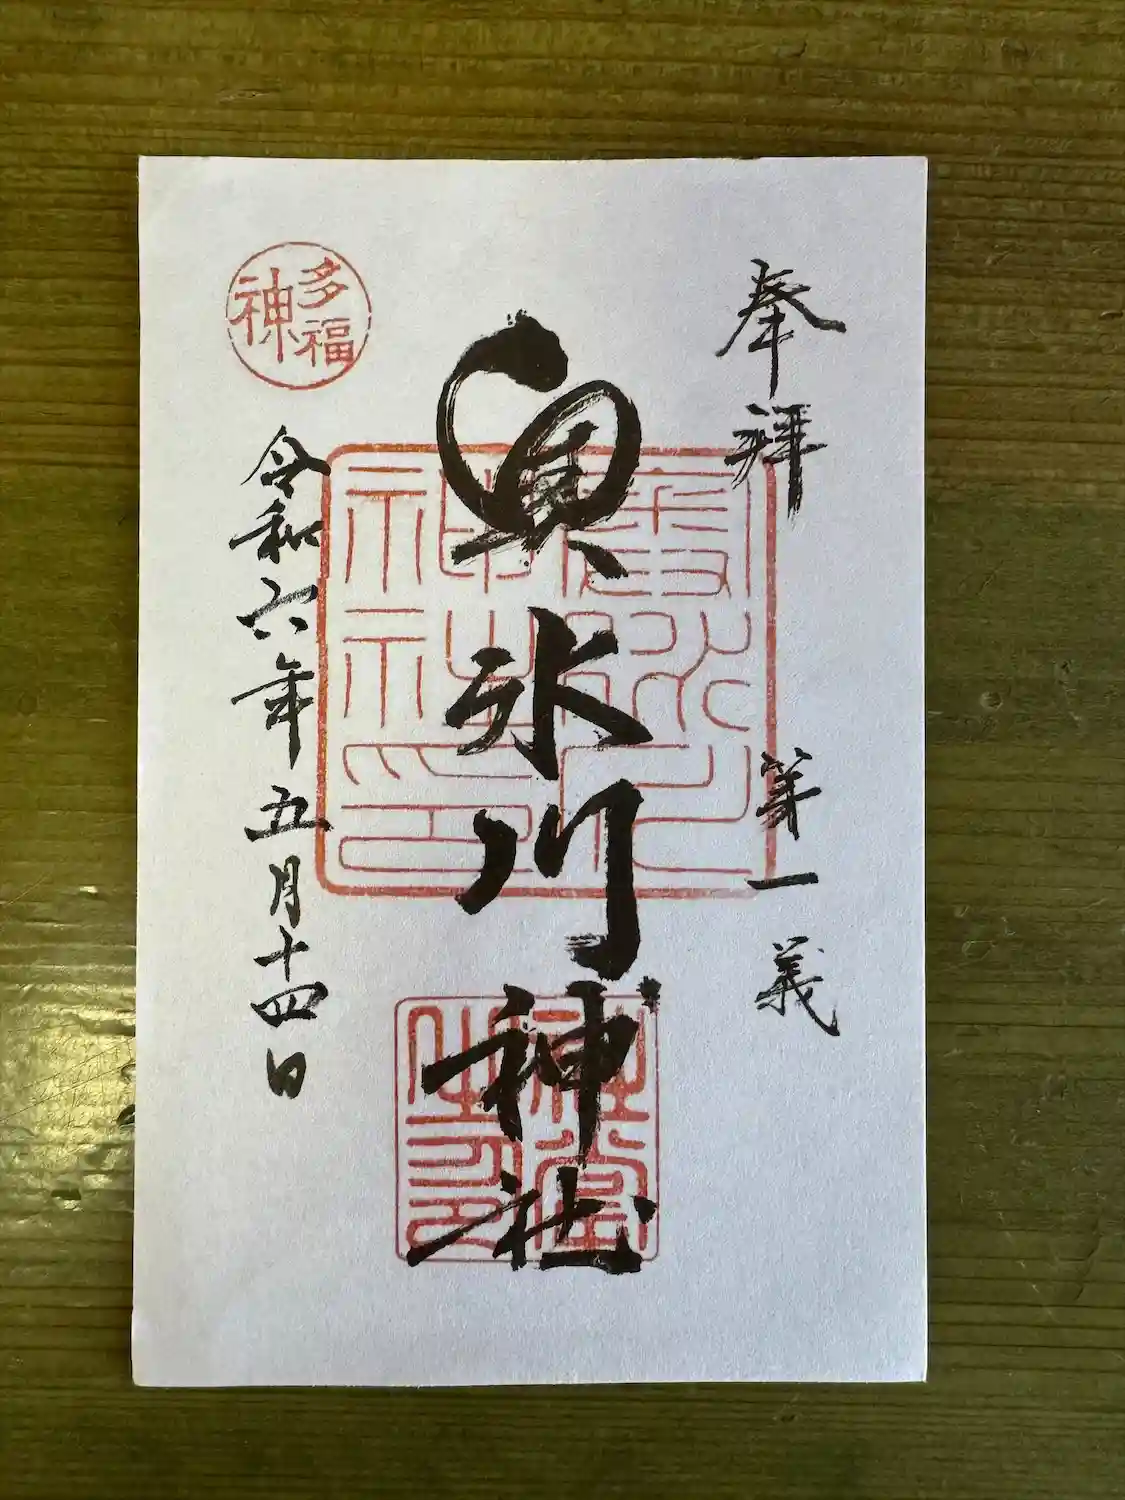 奉拝
第一義
奥氷川神社
多福
神
令和六年五月十四日